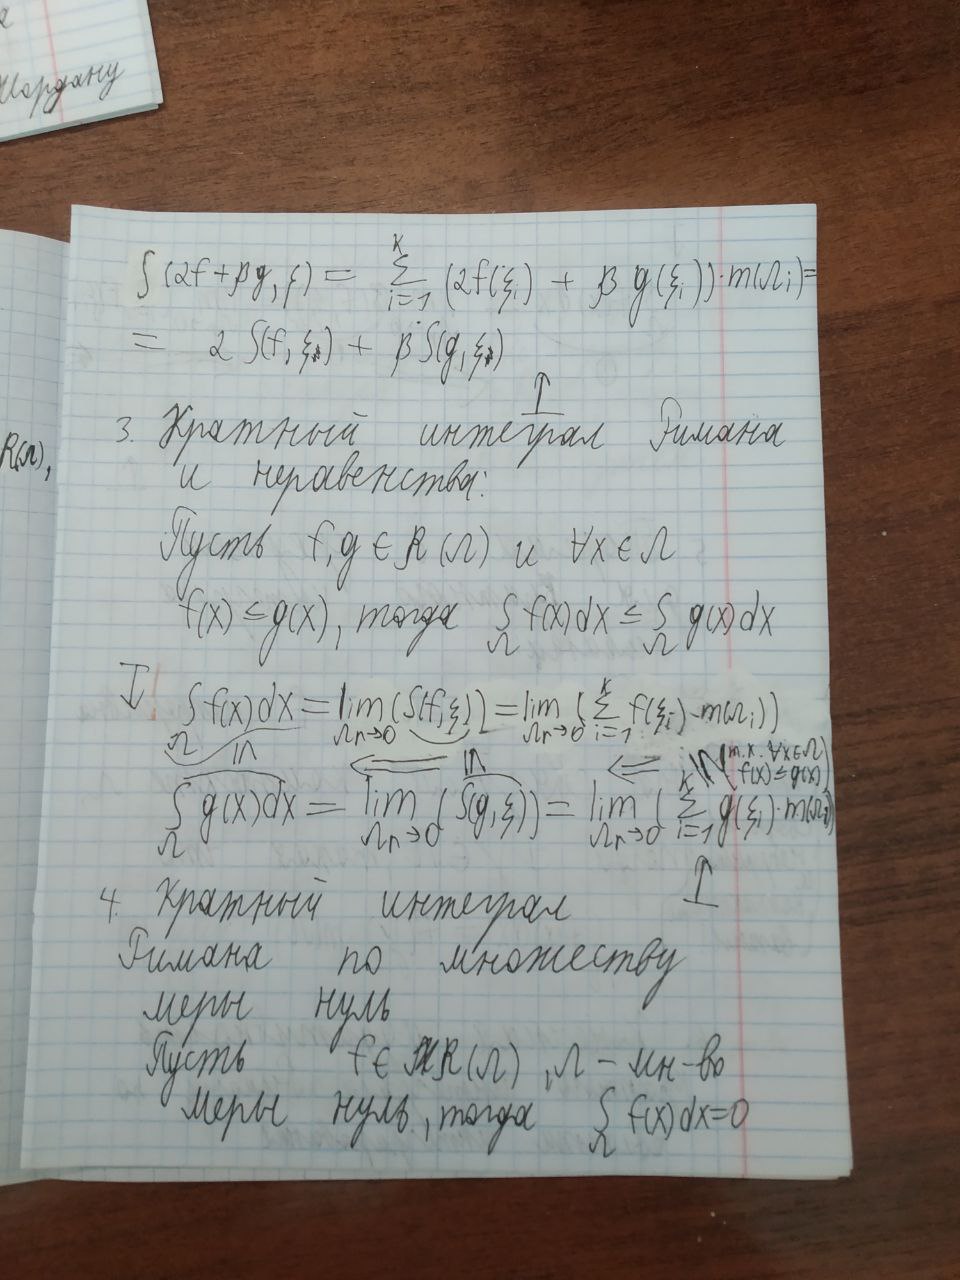 Жордану
R(Ω),
S(αf+βg, ξ) = Σ_{i=1}^{k} (αf(ξ_i) + βg(ξ_i))·m(Ω_i)=
= αS(f, ξ) + βS(g, ξ)
3. Кратный интеграл Римана
и неравенства:
Пусть f,g ∈ R(Ω) и ∀x∈Ω
f(x) ≤ g(x), тогда ∫_Ω f(x)dx ≤ ∫_Ω g(x)dx
∫_Ω f(x)dx = lim_{Ωr→0} (S(f,ξ)) = lim_{Ωr→0} (Σ_{i=1}^{k} f(ξ_i)·m(Ω_i))
(т.к. ∀x∈Ω
f(x)≤g(x))
∫_Ω g(x)dx = lim_{Ωr→0} (S(g,ξ)) = lim_{Ωr→0} (Σ_{i=1}^{k} g(ξ_i)·m(Ω_i))
4. Кратный интеграл
Римана по множеству
меры нуль
Пусть f∈R(Ω), Ω – мн-во
меры нуль, тогда ∫_Ω f(x)dx=0